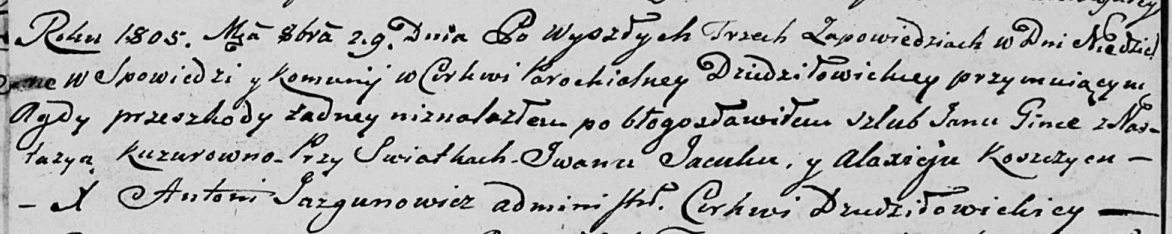 Roku 1805. Mca 8bra 29. Dnia Po wyszłych Trzech Zapowiedziach w Dni Niedziel
ne w Spowiedzi y Komunij w Cerkwi Parochialney Dziedziłowickiey przymuiącym
A gdy przeszkody żadney nieznalazłem pobłogosławiłem szlub Janu Gince z Nas-
tazyą Kuzurowno. Przy Swiatkach. Iwanu Jacuku, y Alaxieju Koszczycu –
– X Antoni Jazgunowicz administr. Cerkwi Dziedziłowickiey –